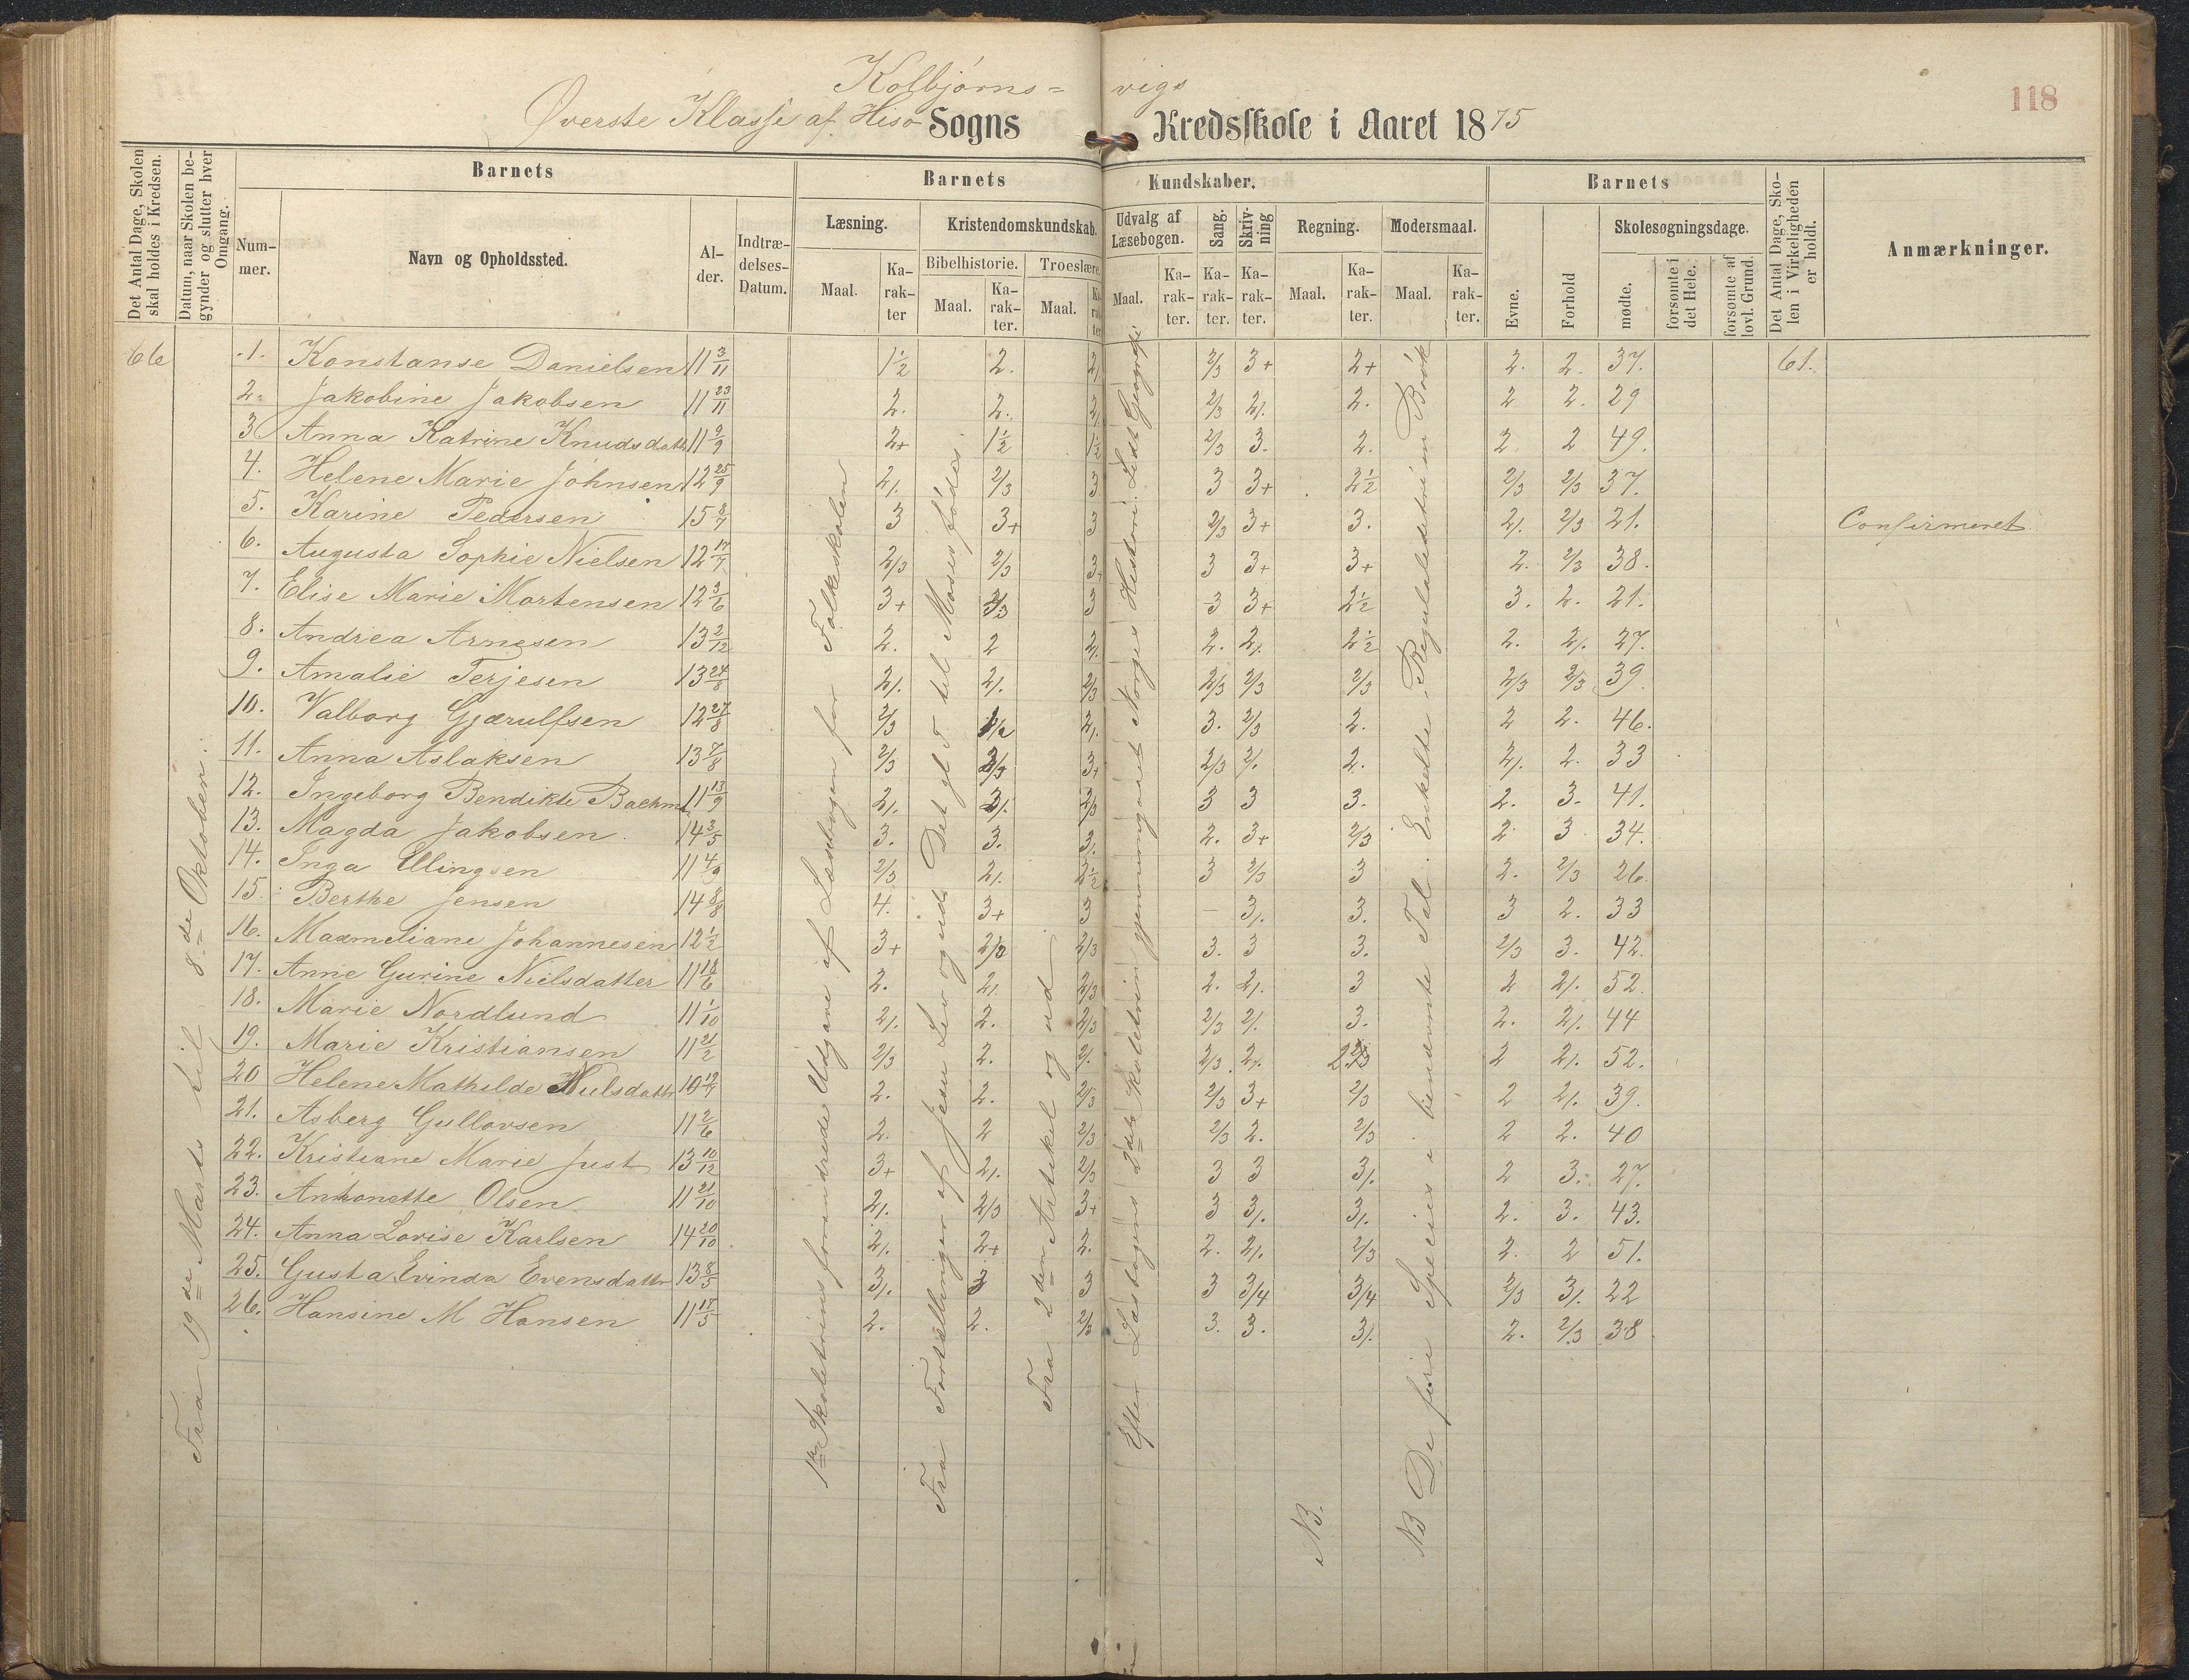 118
Kolbjørns= vigs
Øverste Klasse af Hisø Sogns Kredsskole i Aaret 1875
Det Antal Dage, Skolen skal holdes i Kredsen.
Datum, naar Skolen begynder og slutter hver Omgang.
Barnets
Barnets Kundskaber.
Barnets
Det Antal Dage, Skolen i Virkeligheden er holdt.
Anmærkninger.
Nummer.
Navn og Opholdssted.
Alder.
Indtrædelses-Datum.
Læsning.
Kristendomskundskab.
Udvalg af Læsebogen.
Sang.
Skrivning
Regning.
Modersmaal.
Evne.
Forhold
Skolesøgningsdage.
Bibelhistorie.
Troeslære.
mødte.
forsømte i det Hele.
forsømte af lovl. Grund.
Maal. Karakter Maal. Karakter. Maal. Karakter Maal. Karakter. Karakter. Karakter. Maal. Karakter. Maal. Karakter.
66 1. Konstanse Danielsen 11 3/11 1½ 2. 2/. 2/3 3+ 2+ 2. 2. 37. 61.
2. Jakobine Jakobsen 11 23/11 2. 2. 2/. 2/3 2/. 2. 2 2. 29
3 Anna Katrine Knudsdatt 11 9/9 2+ 1½ 1½ 2/3 3. 2. 2. 2 49.
4. Helene Marie Johnsen 12 25/9 2/. 2/3 3 3 3+ 2½ 2/3 2/3 37.
5. Karine Pedersen 15 8/7 3 3+ 3 2/3 3+ 3. 2/. 2/3 21. Confirmeret
6. Augusta Sophie Nielsen 12 17/7 2/3 2/3 3+ 3 3+ 3+ 2. 2/3 38.
7. Elise Marie Mortensen 12 3/6 3+ 2/3 3 3 3+ 2½ 3. 2. 21.
8. Andrea Arnesen 13 2/12 2. 2 2/. 2. 2/. 2½ 2. 2/. 27.
9. Amalie Terjesen 13 24/8 2/. 2/. 2/3 2/3 2/3 2/3 2/3 2/3 39.
10. Valborg Gjærulfsen 12 27/8 2/3 1½ 2/. 3. 2/3 2. 2 2. 46.
11. Anna Aslaksen 13 7/8 2/3 2/3 3+ 2/3 2/. 2. 2/. 2. 33
12. Ingeborg Bendikte Backm 11 13/9 2/. 2/. 2/3 3 3 3. 2. 3. 41.
13. Magda Jakobsen. 14 3/5 3. 3. 3/. 2. 3+ 2/3 2. 3. 34.
14. Inga Ellingsen 11 4/9 2/3 2/. 2½ 3 2/3 3 2. 2/3 26.
15. Berthe Jensen 14 8/8 4. 3+ 3 – 3/. 3. 3 2. 33
16. Maxmeliane Johannesen 12 ½ 3+ 2/3 2/3 3. 3 3. 2/3 3. 42.
17. Anne Gurine Nielsdatter 11 18/6 2. 2/. 2/3 2. 2/. 3 2 2/. 52.
18. Marie Nordlund 11 1/10 2/. 2. 2/3 2/3 2/. 3. 2. 2/. 44
19. Marie Kristiansen 11 21/2 2/3 2. 2/. 2/3. 2/. 2/3 2 2/. 52.
20 Helene Mathilde Nielsdattr 10 12/7 2. 2. 2/3 2/3 3+ 2/3 2 2/. 39.
21. Asberg Gullovsen 11 2/6 2. 2 2/3 2/3 2. 2/3 2 2. 40
22. Kristiane Marie Just 13 10/12 3+ 2/. 2/3 3 3 3/. 2 3. 27.
23. Antonette Olsen 11 21/10 2/. 2/3 3+ 3 3/. 3/. 2. 3. 43.
24. Anna Lovise Karlsen 14 20/10 2/. 2+ 2. 2. 2/. 2/3 2. 2 51.
25. Gusta Evinda Evensdattr 13 8/5 3/. 3 3 3 3/4 3/4 2/3 3/. 22
26. Hansine M Hansen 11 17/5 2. 2. 2/3 3. 3. 3/. 2. 2/3 38.
Fra 19de Marts til 8de Oktober.
1ste Skoletrins forandrede Udgave af Læsebogen for Folkeskolen
Fra Fortællinger af Jesu Lev og ud. Det gl. T. til Moses fødes.
Fra 2den Artikel og ud
Efter Læsebogens 2det Skoletrin gjennemgaaet Norges Historie. Lidt Geografi
NB.
NB De fire Species i benævnte Tal. Enkelte Regulaledetri m Brøk